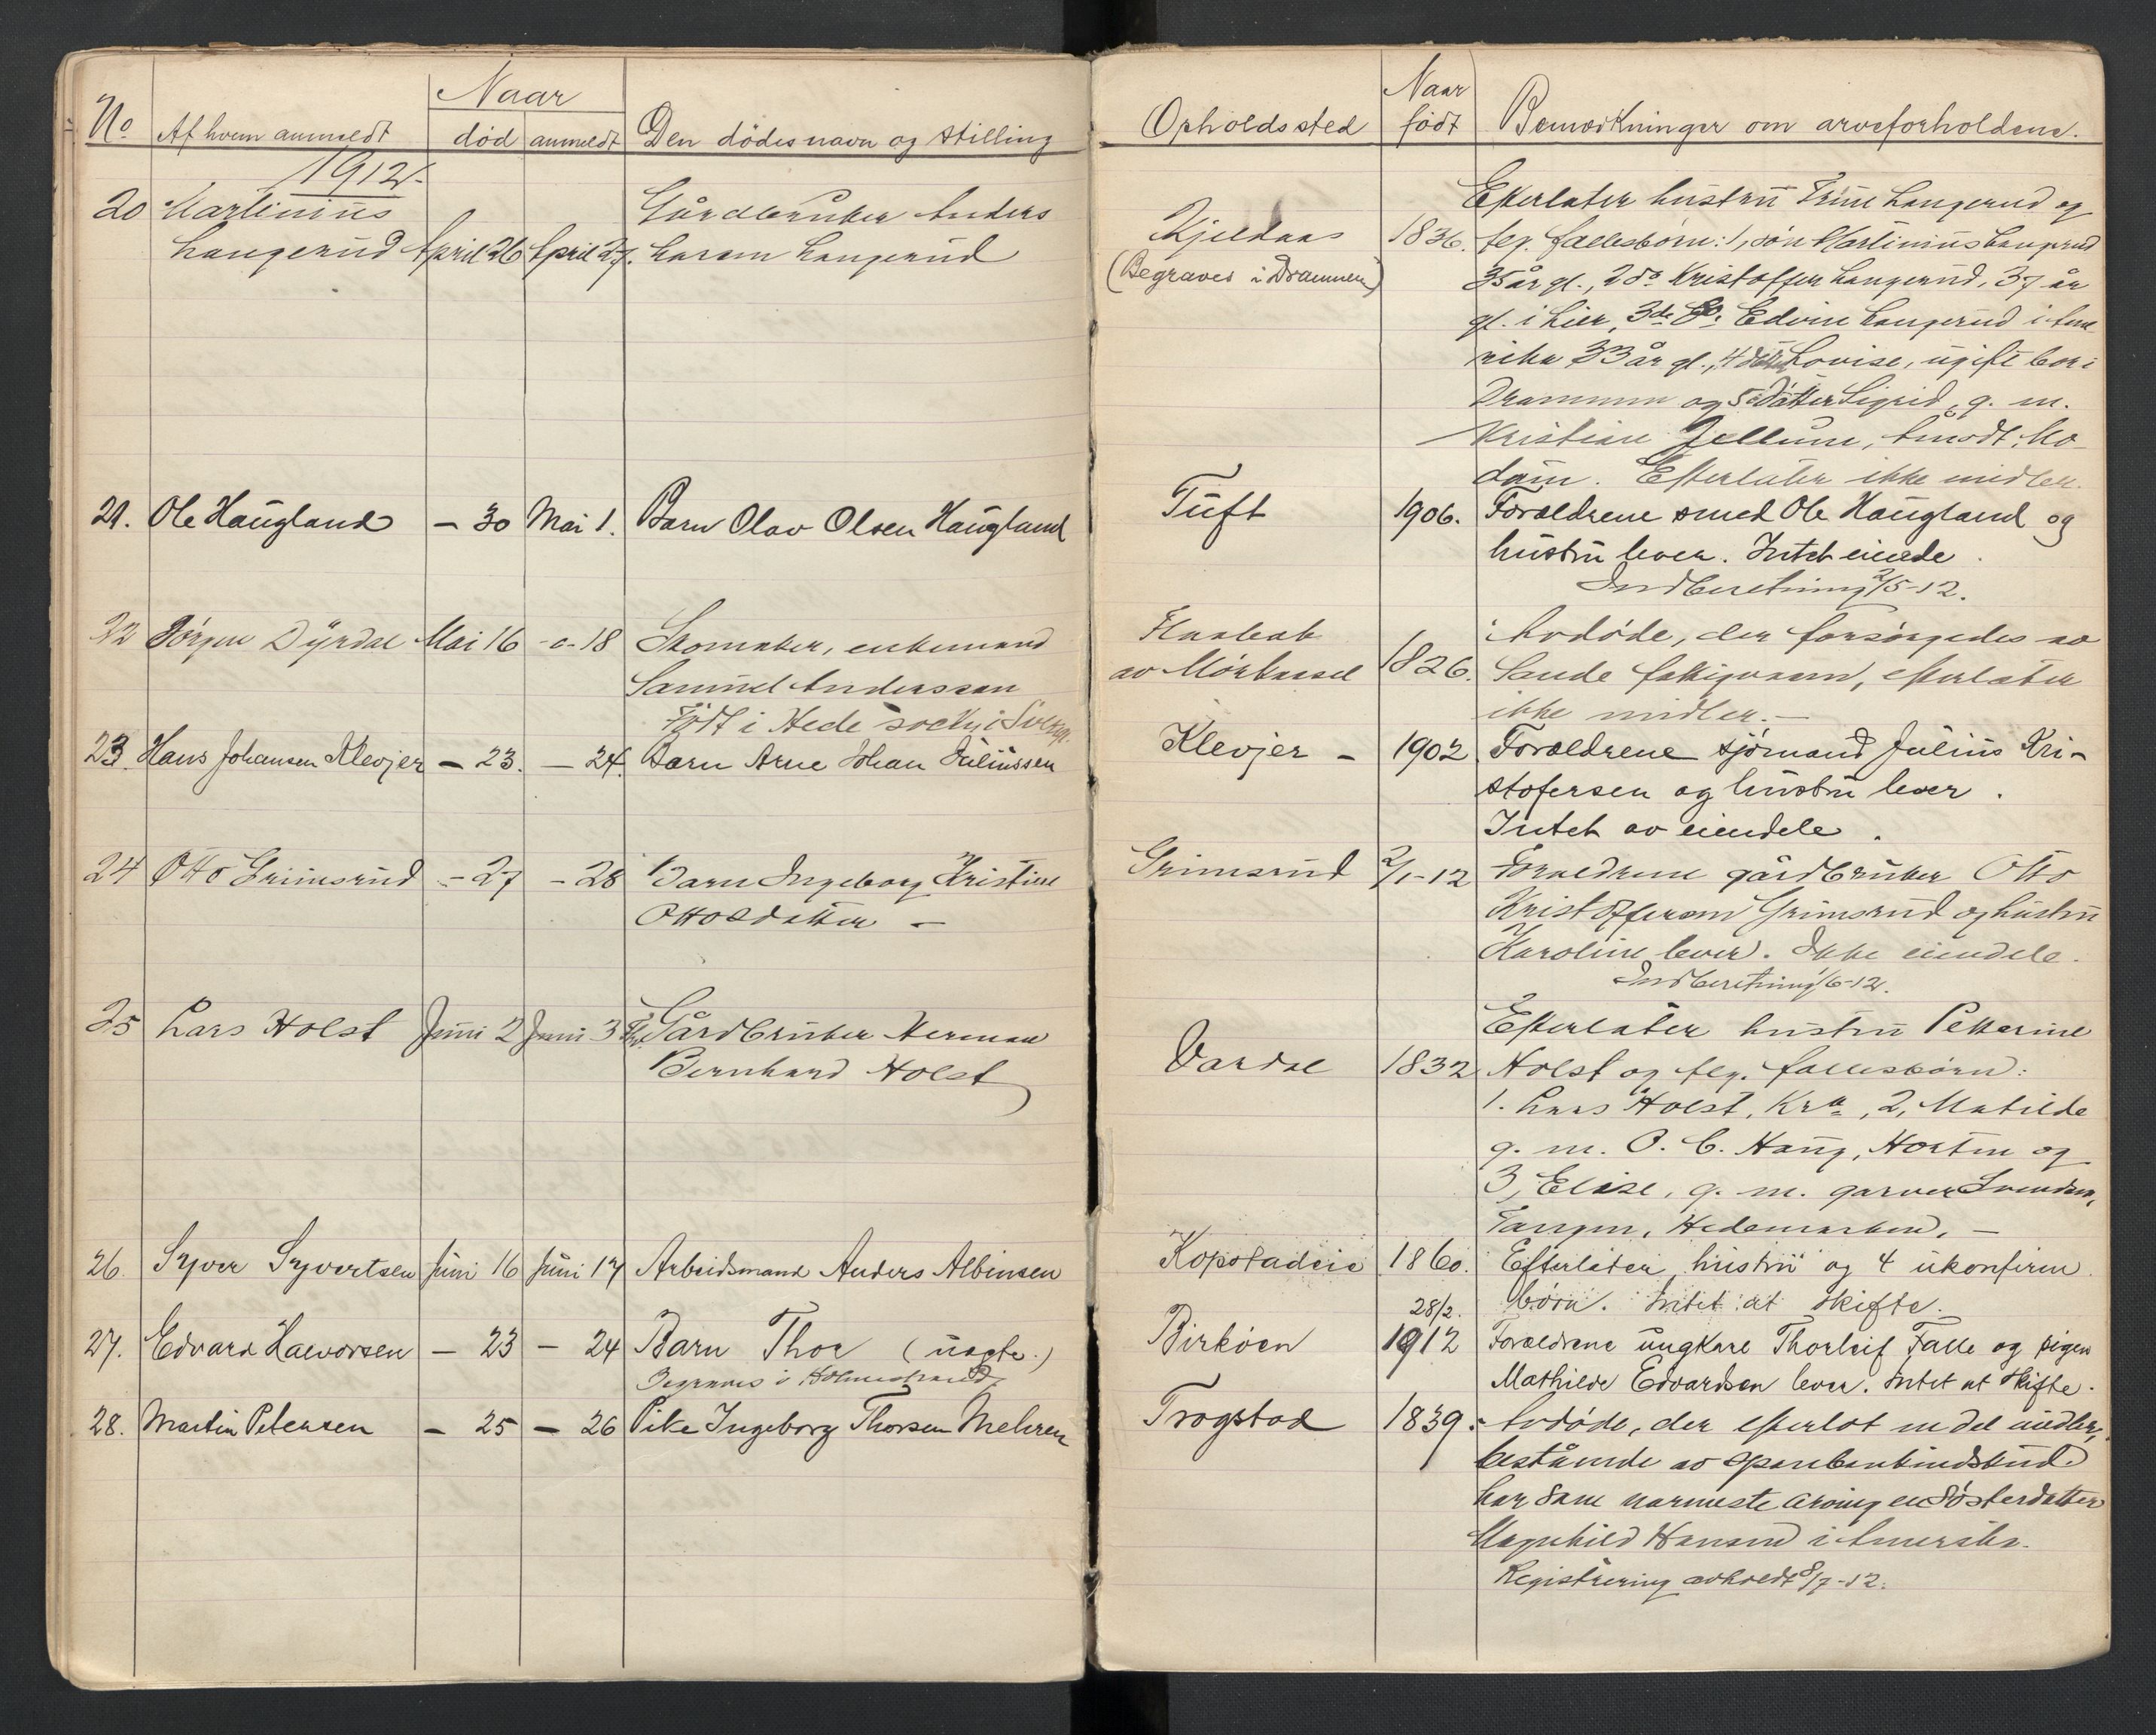 No
Af hvem anmeldt
Naar
død
anmeldt
Den dødes navn og stilling
1912.
20 Martinius
Langerud April 26 April 27.
Gårdbruker Anders
Larsen Langerud
21. Ole Haugland — 30 Mai 1. Barn Olav Olsen Haugland
22 Jörgen Dyrdal Mai 16 -o- 18 Skomaker, enkemand
Samuel Anderssen
Födt i Hede sockn i Sverig.
23. Hans Johansen Klevjer — 23. — 24. Barn Arne Johan Juliussen
24 Otto Grimsrud — 27 — 28 Barn Ingeborg Kristine
Ottosdatter —
25 Lars Holst Juni 2 Juni 3 Gårdbruker Herman
Bernhard Holst
26. Syver Syvertsen Juni 16 Juni 17 Arbeidsmand Anders Albinsen
27. Edvard Halvorsen — 23 — 24 Barn Thor (uægte.)
Begraves i Holmestrand
28. Martin Petersen — 25 — 26 Pike Ingeborg Thorsen Mehren
Opholdssted
Naar
født
Bemerkninger om arveforholdene.
Kjeldaas
(Begraves i Drammen)
1836.
Efterlater hustru Trine Langerud og
flg. fællesbörn: 1, sön Martinius Langerud
35 år gl., 2 do Kristoffer Langerud, 37 år
gl. i Lier, 3de do: Edvin Langerud i Ame
rika 33 år gl., 4 datter Lovise, ugift bor i
Drammen og 5 datter Sigrid, g. m.
Kristian Jellum, Åmodt, Mo
dum. Efterlater ikke midler.
Tuft 1906. Forældrene smed Ole Haugland og
hustru lever. Intet eiende.
Indberetning 2/5-12.
av Mörkassel
1826.
Avdöde, der forsörgedes av
Sande fattigvæsen, efterlater
ikke midler. —
Klevjer — 1902 Forældrene sjömand Julius Kri-
stofersen og hustru lever.
Intet av eiendele.
Grimsrud 2/1-12 Forældrene gårdbruker Otto
Kristoffersen Grimsrud og hustru
Karoline lever. Ikke eiendele.
Indberetning 1/6-12.
Vardal 1832
Efterlater hustru Petterine
Holst og flg. fællesbörn:
1. Lars Holst, Kra, 2, Matilde
g. m. O. C. Haug, Horten og
3, Elise, g. m. garver Svendsen,
Tangen, Hedemarken. —
Kopstadeie 1860. Efterlater hustru og 4 ukonfirm.
börn. Intet at skifte.
Birköen
28/2.
1912
Forældrene ungkarl Thorleif Falle og pigen
Mathilde Edvardsen lever. Intet at skifte.
Trogstad 1839. Avdöde, der efterlot en del midler,
bestående av sparebankindskud
har som nærmeste arving en Sösterdatter
Magnhild Hansen i Amerika.
Registrering avholdt 8/7-12.